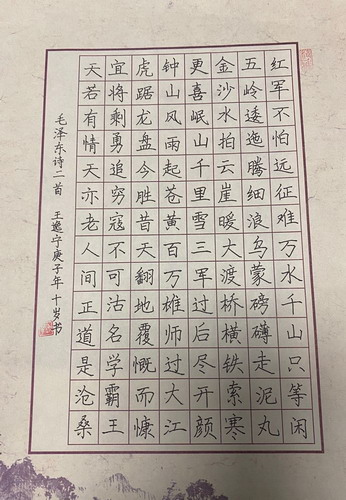 红军不怕远征难万水千山只等闲
五岭逶迤腾细浪乌蒙磅礴走泥丸
金沙水拍云崖暖大渡桥横铁索寒
更喜岷山千里雪三军过后尽开颜
钟山风雨起苍黄百万雄师过大江
虎踞龙盘今胜昔天翻地覆慨而慷
宜将剩勇追穷寇不可沽名学霸王
天若有情天亦老人间正道是沧桑
毛泽东诗二首 王逸宁庚子年十岁书